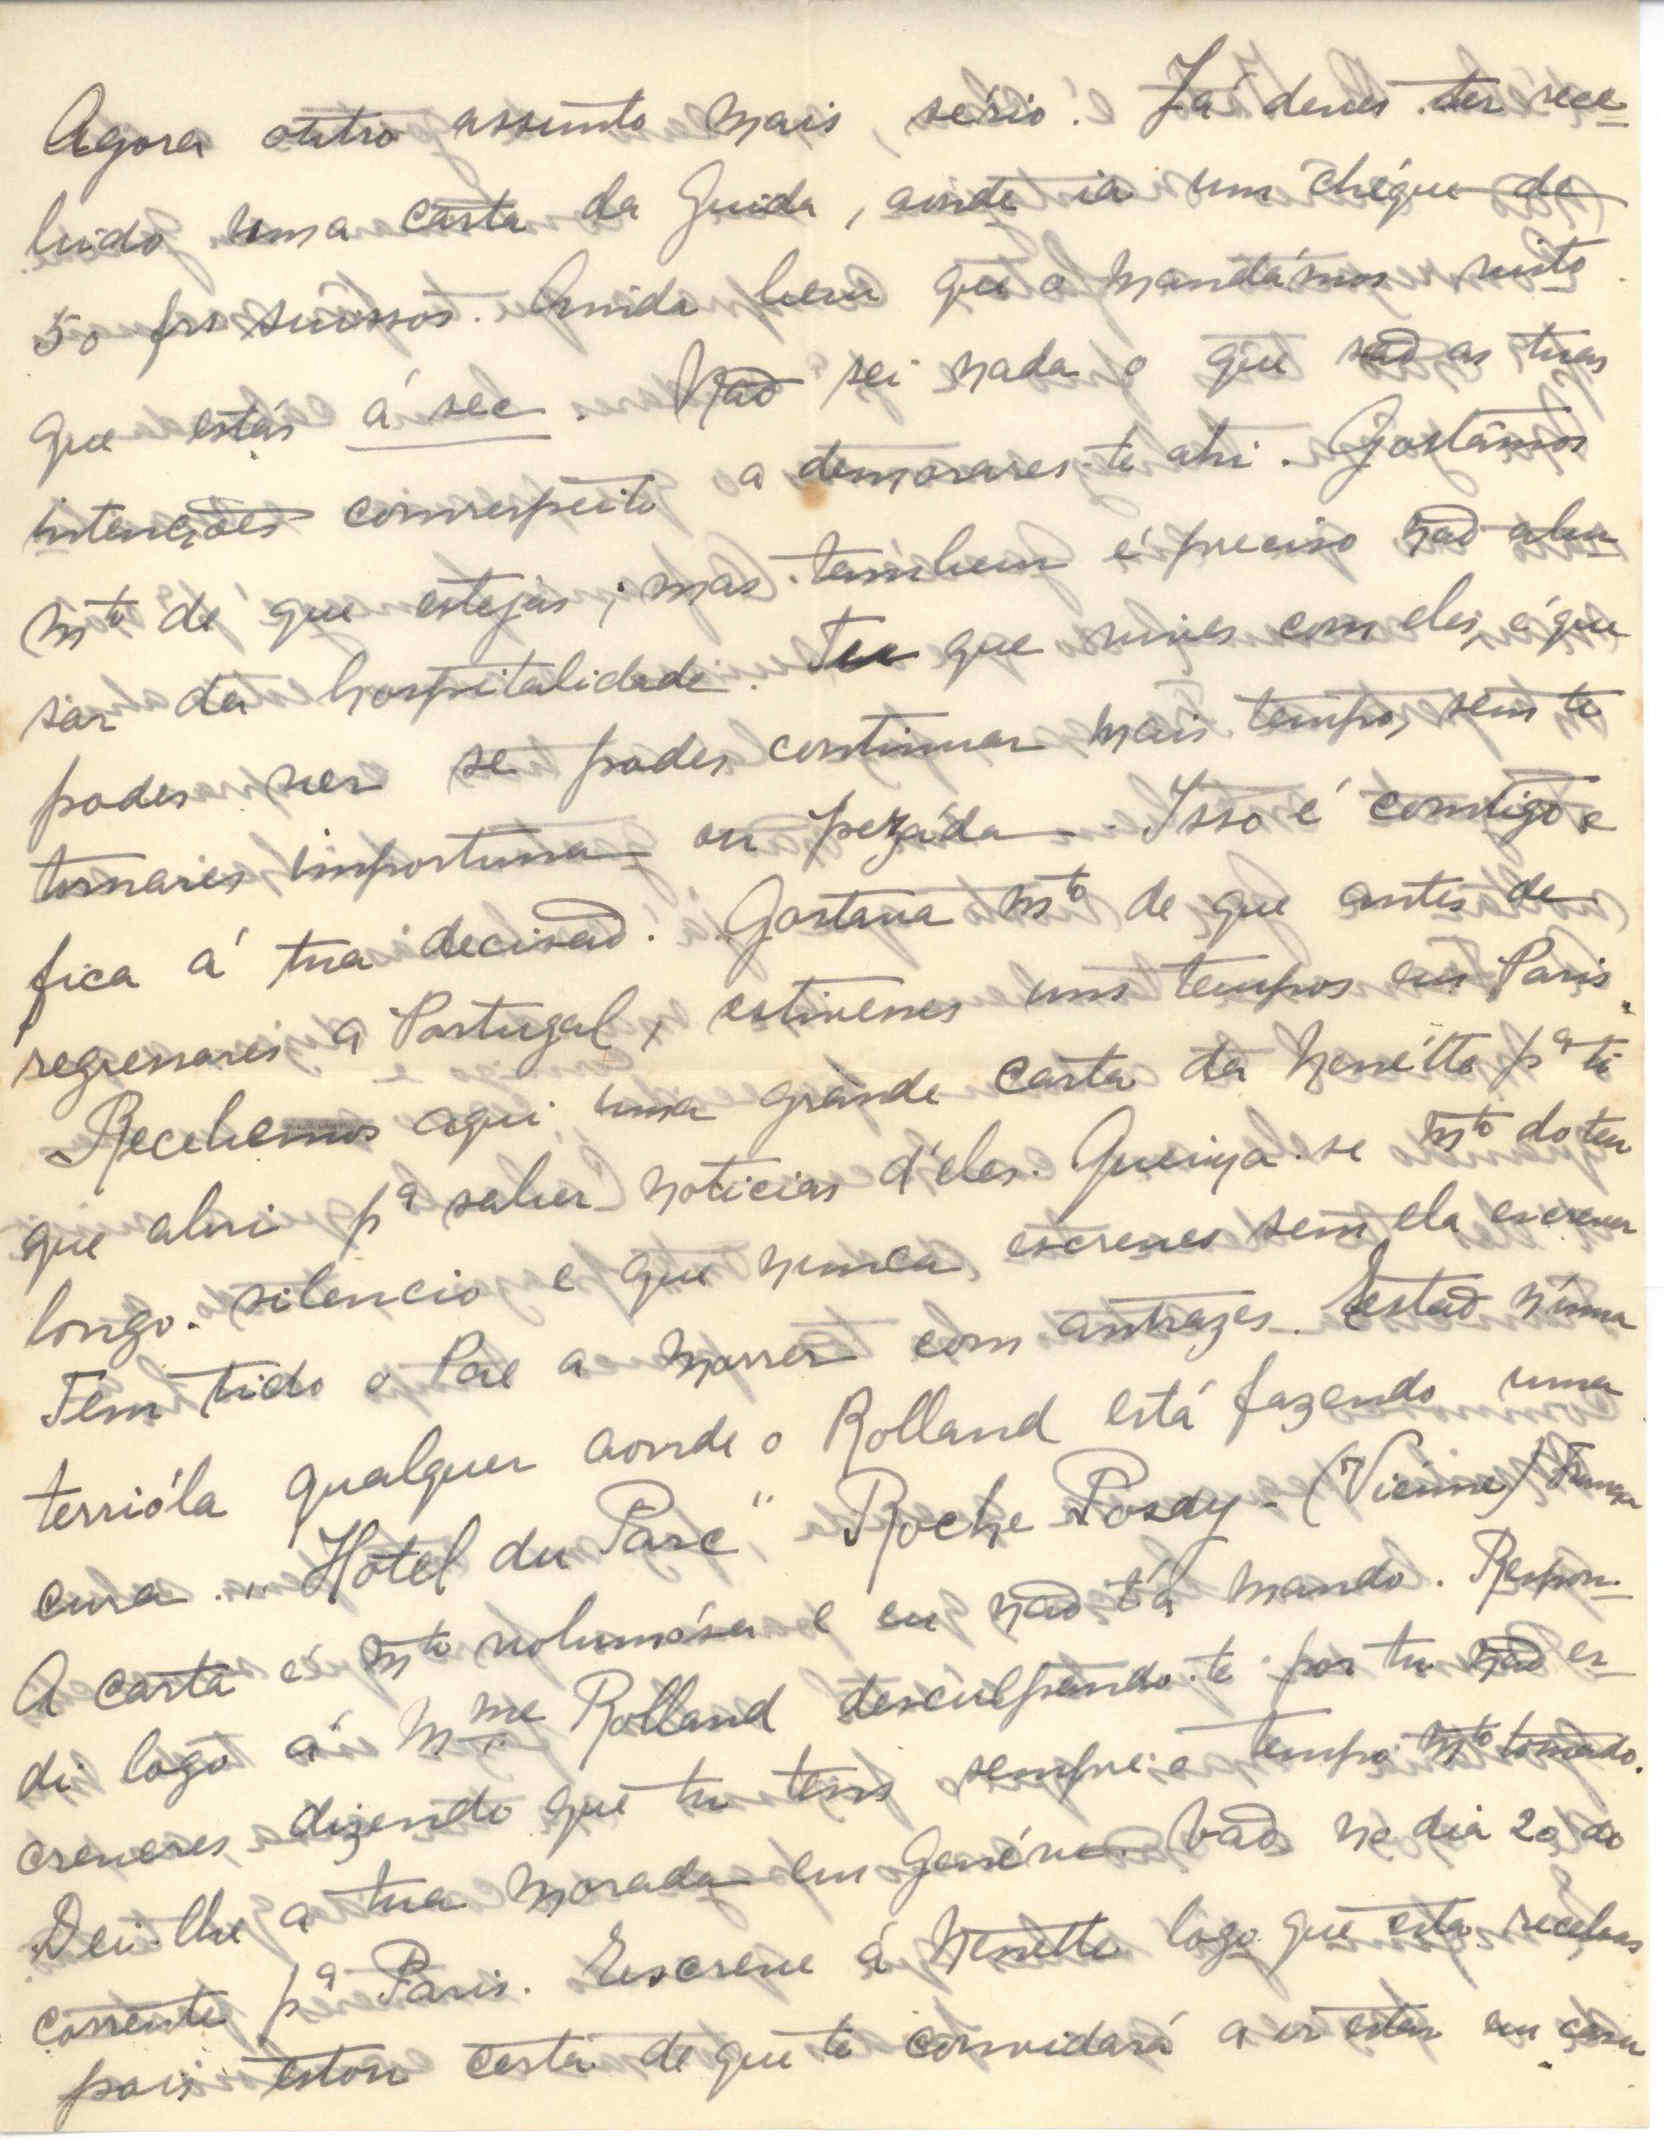 Agora outro assunto mais sério. Já deves ter rece-
bido uma carta da Guida, aonde ia um chéque de
50 frs suissos. Ainda bem que o mandámos visto
que estás á sec. Não sei nada o que são as tuas
intenções com respeito a demorares-te ahi. Gostâmos
mto de que estejas; mas tambem é preciso não abu-
sar da hospitalidade. Tu que vives com eles, é que
podes ver se podes continuar mais tempo, sem te
tornares importuna ou pezáda. Isso é comtigo e
fica á tua decisão. Gostava mto de que antes de
regressares a Portugal, estivesses uns tempos em Paris.
Recebemos aqui uma grande carta da Nenétte pa ti
que abri pa saber noticias d'eles. Queixa-se mto do teu
longo silencio e que nunca escreves sem ela escrever
Tem tido o Pae a morrer com antrazes. Estão n'uma
terrióla qualquer aonde o Rolland está fazendo uma
cura. "Hotel du Parc" Roche Posay - (Viénne) França
A carta é mto volumósa e eu não t'a mando. Respon-
di logo á Mme Rolland desculpando-te por tu não es-
creveres, dizendo que tu tens sempre o tempo mto tomado.
Dei-lhe a tua morada em Genéve. Vão no dia 20 do
corrente pa Paris. Escreve á Nenette logo que esta recebas
pois estou certa de que te convidará a ir estar em casa